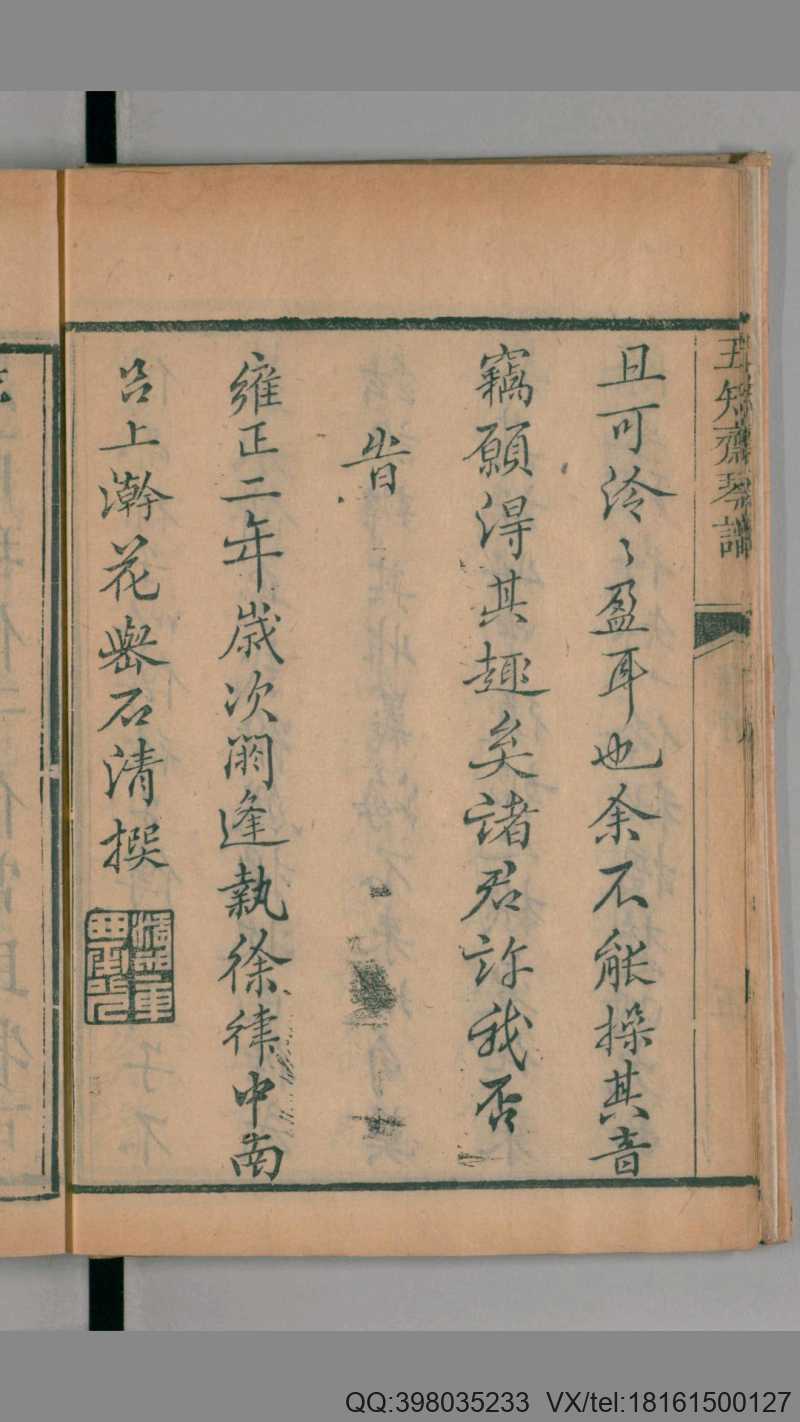 五知齋琴譜
且可泠〻盈耳也余不能操其音
竊願得其趣矣諸君許我否
旹
雍正二年歲次閼逢執徐律中南
呂上澣花嶴石清撰
QQ:398035233 VX/tel:18161500127